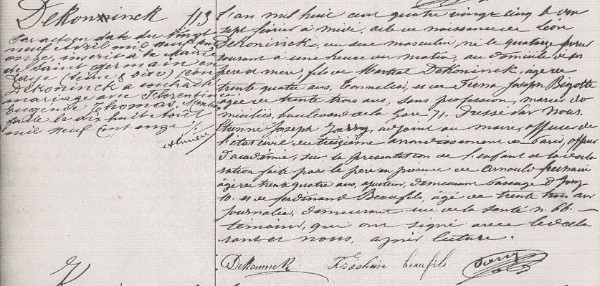 Dekoninck
113
Par acte en date du vingt
neuf Avril mil neuf cent
onze, inscrit à la Mairie
de Saint Germain en
Laye (Seine & Oise) Léon
Dekoninck a contracté
mariage avec Florentine
Thomas, Mention
faite le dix huit
mil neuf cent onze.
L'an mil huit cent quatre vingt cinq le
sept février à midi, acte de naissance de Léon
Dekoninck, du sexe masculin, né le quatre février
courant à une heure du matin au domicile de ses
père et mère, fils de Dekoninck, âgé de
trente quatre ans, Tonnelier, et de Joseph
âgée de trente trois ans, sans profession, mariés,
boulevard de la Gare 71. Dressé par Nous
Etienne Joseph Jarry, adjoint au maire, officier de
l'état civil du treizième arrondissement de Paris, officier
d'académie, sur la présentation de l'enfant et la décla-
ration faite par le père en présence de
âgé de trente quatre ans, ajusteur, demeurant passage
10, et de Ferdinand Beaufils, âgé de trente trois ans
journalier, demeurant rue de la Santé n.
témoins, qui ont signé avec le décla-
rant et nous, après lecture.
Dekoninck beaufils